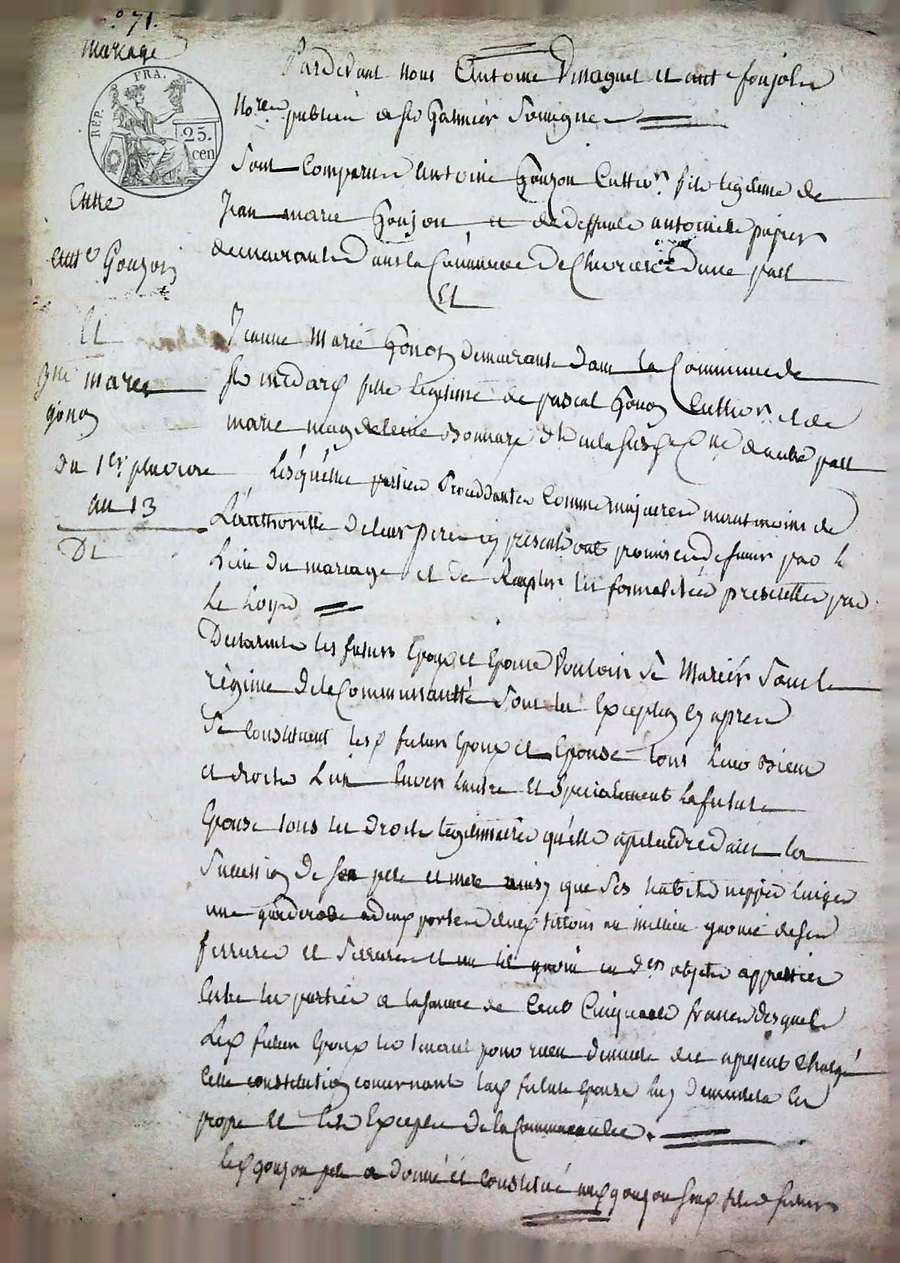 n° 71.
mariage
RÉP. FRA.
25.
cen
Entre
ant.e Goujon
Et
marie
gonon
du 1er pluviose
an 13
Dt
Pardevant nous Antoine et ant
No.re public de St Galmier Soussignes
Sont Comparus Antoine Goujon Cultiv.r fils legitime de
Jean marie Goujon et de deffunte antoinette papier
demeurants Dans la Commune De Chevrieres d'une part
Et
Jeanne Marie Gonon demeurante dans la Commune de
St medard fille legitime de pascal Gonon Cultiv.r et de
marie magdeleine d'autre part
Lesquelles parties procedantes Comme majeures neantmoins de
L'authorité de leurs peres cy presents ont promis de s'unir par le
Lien du mariage et de Remplir les formalités prescrittes par
Les Loyx
Declarants les futurs Epoux et Epouse Vouloir se Marier Sous le
régime de la Communauté Sous les Exceptions cy apres
Se constituent lesd futurs Epoux et Epouse tous leurs Biens
et droits L'un Envers L'autre Et Specialement la future
Epouse tous les droits legitimaires qu'elle a prendre dans la
Succession de ses pere et mere ainsy que ses habits nippes linges
une garderobe a deux portes deux tiroirs au millieu garnie de ses
ferrures et Serrures et un lit garni objets apprecies
Entre les parties a la somme de Cent Cinquante francs desquels
Led futur Epoux demeure des apresent Chargé
Cette constitution concernant lad future epouse luy demeurera
propre et Exceptée de la Communauté.
led goujon pere a donné et constitué aud goujon fils futur